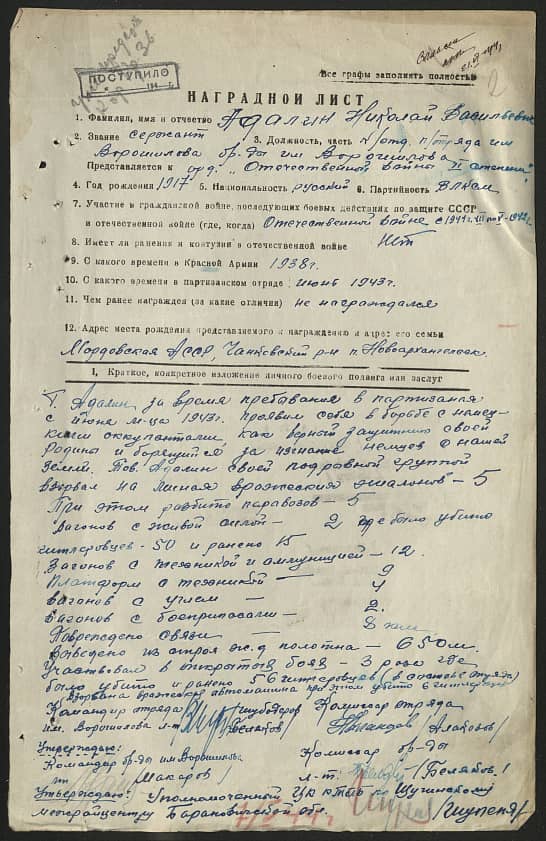 ПОСТУПИЛО
Все графы заполнять полностью
2
НАГРАДНОЙ ЛИСТ
1. Фамилия, имя и отчество Адалин Николай Васильевич
2. Звание сержант 3. Должность, часть к/отд. п/отряда им
Ворошилова бр-ды им Ворошилова
Представляется к орд. „Отечественной войны II степени"
4. Год рождения 1917 5. Национальность русский 6. Партийность ВЛКСМ
7. Участие в гражданской войне, последующих боевых действиях по защите СССР
и отечественной войне (где, когда) Отечественной войне с 1941 г.
8. Имеет ли ранения и контузии в отечественной войне Нет
9. С какого времени в Красной Армии 1938 г.
10. С какого времени в партизанском отряде июнь 1943 г.
11. Чем ранее награжден (за какие отличия) не награждался
12. Адрес места рождения представляемого к награждению и адрес его семьи
Мордовская АССР, р-н п. Новоархангельск.
I. Краткое, конкретное изложение личного боевого подвига или заслуг
Т. Адалин за время пребывания в партизанах
с июня м-ца 1943 г. проявил себя в борьбе с немец-
кими оккупантами, как верный защитник своей
Родины и борящийся за изгнание немцев с нашей
земли. Тов. Адалин своей подрывной группой
взорвал на минах вражеских эшалонов - 5
При этом разбито паравозов - 5
Вагонов с живой силой - 2 где было убито
гитлеровцев - 50 и ранено 15
Вагонов с техникой и аммуницией - 12.
Платформ с техникой - 9
Вагонов с углем - 4
Вагонов с боеприпасами - 2.
Повреждено связи - 2 клм.
Выведено из строя ж.д. полотна - 650 м.
Участвовал в открытых боях - 3 раза где
было убито и ранено 56 гитлеровцев (в составе отряда)
Взорвана вражеская автомашина при этом убито 6 гитлеровцев
Командир отряда Комиссар отряда
им. Ворошилова л-т
Утверждаю:
Командир бр-ды им Ворошилова Комиссар бр-ды
/Макаров/ л-т: /Белябов/
Утверждаю: Уполномоченный ЦК КП(б) по Щучинскому
межрайцентру Барановичской обл.